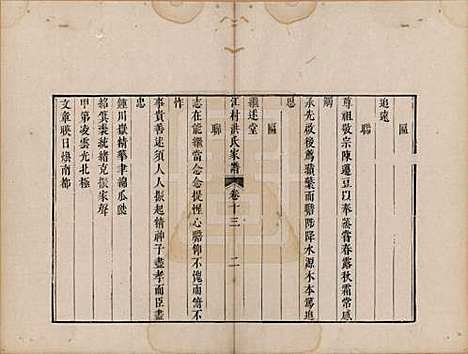 匾
追遠
聯
尊祖敬宗陳籩豆以奉蒸嘗春露秋霜常感
惕
承先啟後薦蘋蘩而瞻陟降水源木本篤追
思
匾
繼述堂
江村洪氏家譜 卷十三 二
聯
志在能繼當念念提惺心瞻仰不愧而俯不
怍
事貴善述須人人振起精神子盡孝而臣盡
忠
鍾川嶽精華聿綿瓜瓞
紹箕裘統緒克振家聲
甲第凌雲光北極
文章映日煥南都